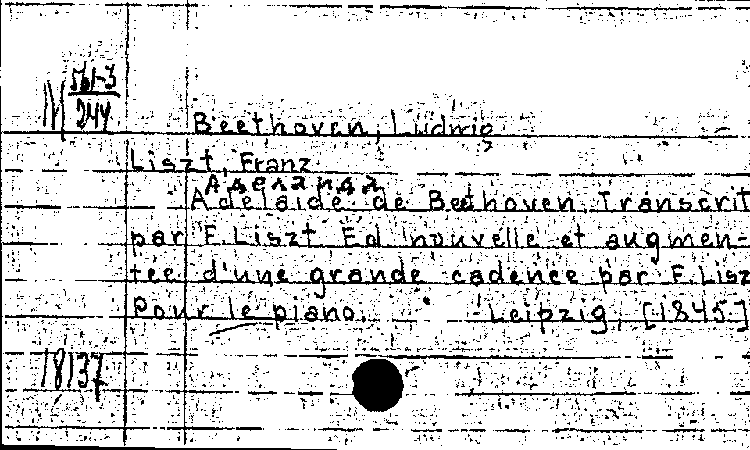 М 561-3
244
Beethoven, Ludwig
Liszt, Franz
Аделаида
Adelaide de Beethoven. Transcrit
par F. Liszt Ed nouvelle et augmen-
tée d'une grande cadence par F. Lisz
Pour le piano. Leipzig, [1845]
18137